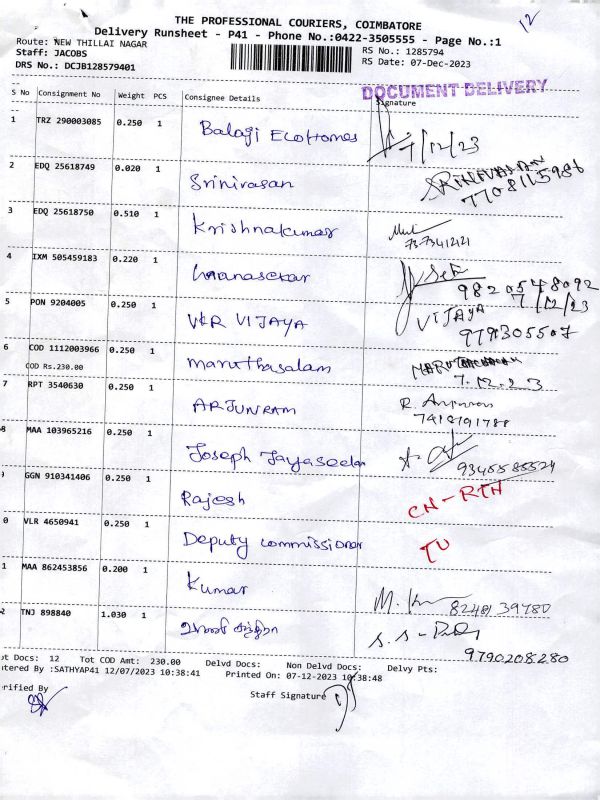 12
THE PROFESSIONAL COURIERS, COIMBATORE
Delivery Runsheet - P41 - Phone No.:0422-3505555 - Page No.:1
Route: NEW THILLAI NAGAR
RS No.: 1285794
Staff: JACOBS
RS Date: 07-Dec-2023
DRS No.: DCJB128579401
DOCUMENT DELIVERY
S No Consignment No Weight PCS Consignee Details Signature
1 TRZ 290003085 0.250 1 Balaji EcoHomes 7/12/23
2 EDQ 25618749 0.020 1 Srinivasan SRINIVASAN
7708115986
3 EDQ 25618750 0.510 1 Krishnakumar
7373412121
4 IXM 505459183 0.220 1
9820548092
7/12/23
5 PON 9204005 0.250 1 VKR VIJAYA VIJAYA
979305507
6 COD 1112003966 0.250 1 maruthasalam
COD Rs.230.00
7.12.23
7 RPT 3540630 0.250 1 ARJUNRAM R.
7418191788
8 MAA 103965216 0.250 1 Joseph Jayaseelan
9345585524
9 GGN 910341406 0.250 1 Rajesh CN-RTN
0 VLR 4650941 0.250 1 Deputy commissioner TU
1 MAA 862453856 0.200 1 Kumar M.
82481 39480
2 TNJ 898840 1.030 1
9790208280
ot Docs: 12 Tot COD Amt: 230.00 Delvd Docs: Non Delvd Docs: Delvy Pts:
ntered By :SATHYAP41 12/07/2023 10:38:41 Printed On: 07-12-2023 10:38:48
erified By
Staff Signature